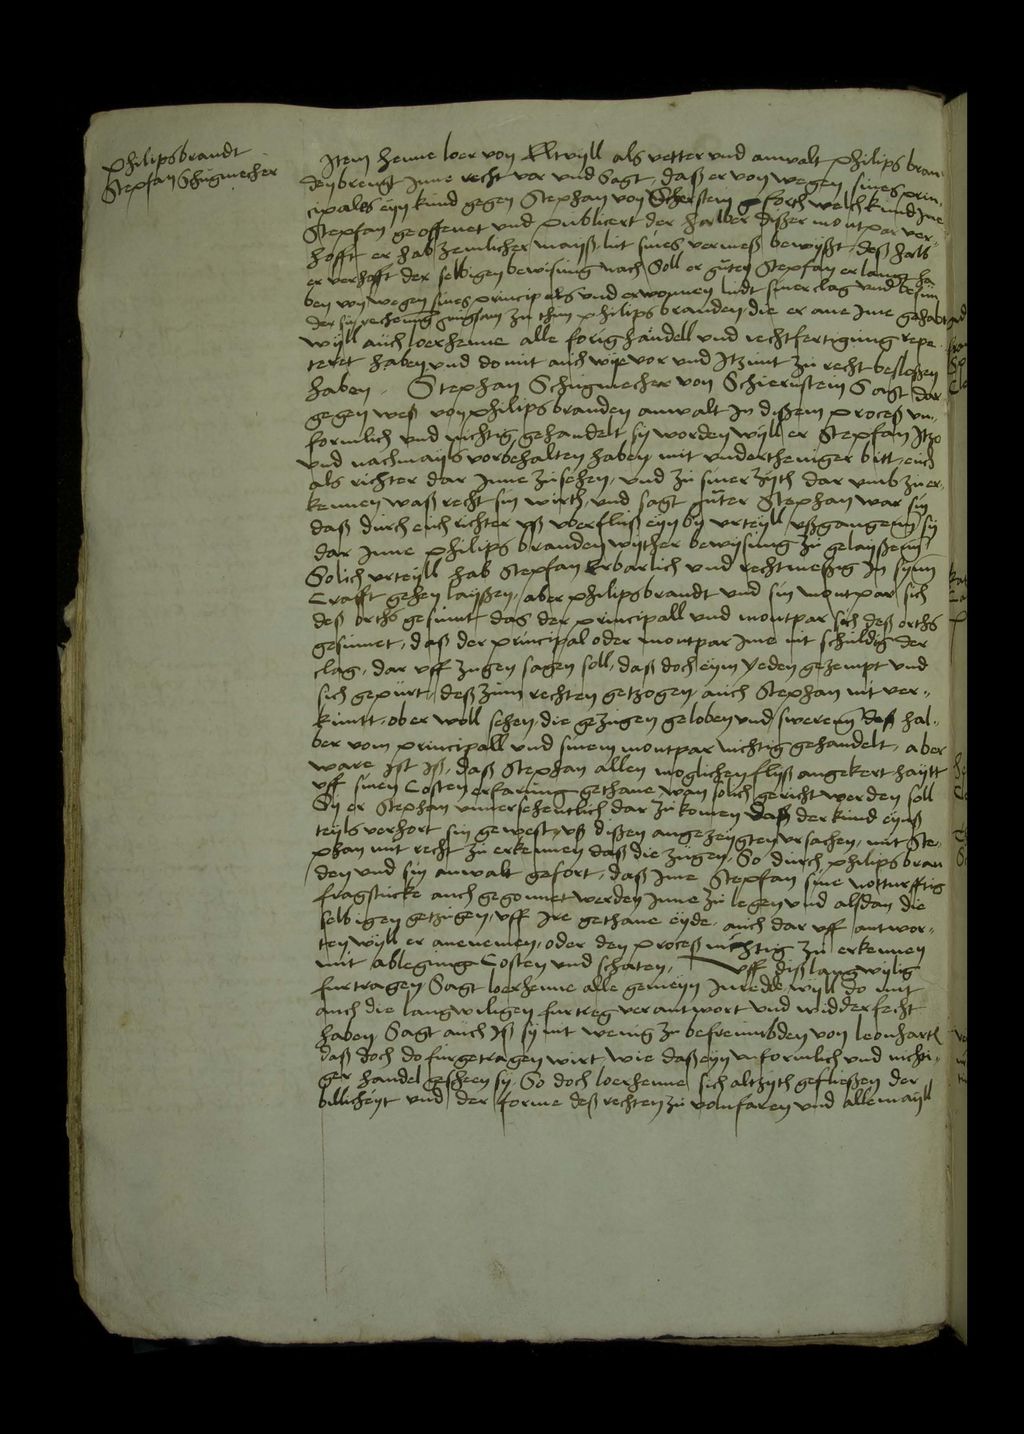 philips brandt
Stepfan Schugmecher
Item Henne loer von Eltvyll als vetter und anwalt philips bran-
den brengt Inne recht vor und Sagt, daß er von wegen sines prin-
cipales eyn kund gegen Stephan von Scherstein gefort welch kund Ime
Stepfan geoffenet und publicert der halber dißer montpar ver-
hofft er hab zemlicher mayß lut sines vermeß bewyßt, deß halb
er verhofft der selbigen bewisung nach Soll er guten Stepfan erlangt ha-
ben von wegen sines principals und erwonnen midt siner clag und
der sin rechenung gnugsam zu thun philips branden die er ane Ime gehabt
wyll auch loerhenne alle forig handell und rechtfertigung repe-
teret haben und domit auch wye vor und Itzunt zu recht besloßen
haben. Stephan Schugmecher von Schierstein Sagt dar
gegen weß von philips branden anwalt In dißem proceß un-
formlich und nichtig gehandelt sy worden wyll er Stepfan Itzo
und nachmayls vorbehalten haben mit undertheniger bitt, euch
als richter dar Inne zu sehen, und zu siner zyth dar umb zu er-
kennen waß recht sin wirth, und sagt guter Stephan war sin
daß durch euch richter uß uberfluß eyn by urteyll ußgangenn sy
dar Inne philips branden wyther bewysung zu gelayßenn
Solich urteyll hab Stepfan Erbarlich und rechtmeßig In synn
Crafft gehen layßen, aber philips brandt und sin montpar sich
deß orths gesumt das der principall und montpar sich deß orths
gesumet, daß der principal oder montpar Ime nit schuldig der
clag, dar uff zugen sagen soll, daß doch eym yeden gezempt und
sich gepürt, deß zum rechten getzogen auch Stephan nit ver-
kuntt, ober woll sehen die gezugen geloben und swerenn deß hal-
ber vom principall und sinem montpar nichtig gehandelt, aber
ware Ist Iß, daß Stephan allen moglichen flyß angekert haytt
uff sinen Costen erfarung gethane wan solich gericht werden soll
Sy er Stephan unversehentlich dar zu komen daß der kund eynß
teyls verhort sin gewest, uß dißen angezeygten ursachen, mit Ste-
phan mit recht zu erkennen daß die zugen, So durch philips bran
den und sin anwalt gefort, daß Ime Stepfan sine notturfftig
fragstucke auch gegonnet werden Inne zu legen und alsdan die
selbigen getzugen, uff Ire gethane eyde, auch dar uff antwor-
ten wyll er anenemen, oder den proceß nichtig zu erkennen
mit ablegung Costen und schaten, Uff diß langwylig
furtragen Sagt loerhenne alle gemeyn Inredde wyll do mit
auch die langwiligen furtreg verantwort und widderfecht
haben Sagt auch Iß sy nit wenig zu befrembden von leonhartt
daß doch do furgetragen wirt wie daß eyn unformlich und nichti-
ger handel gescheen sy. So doch loerhenne sich altzyth gefließen der
billicheyt und der forme deß rechten zu volnfaren und allemayll